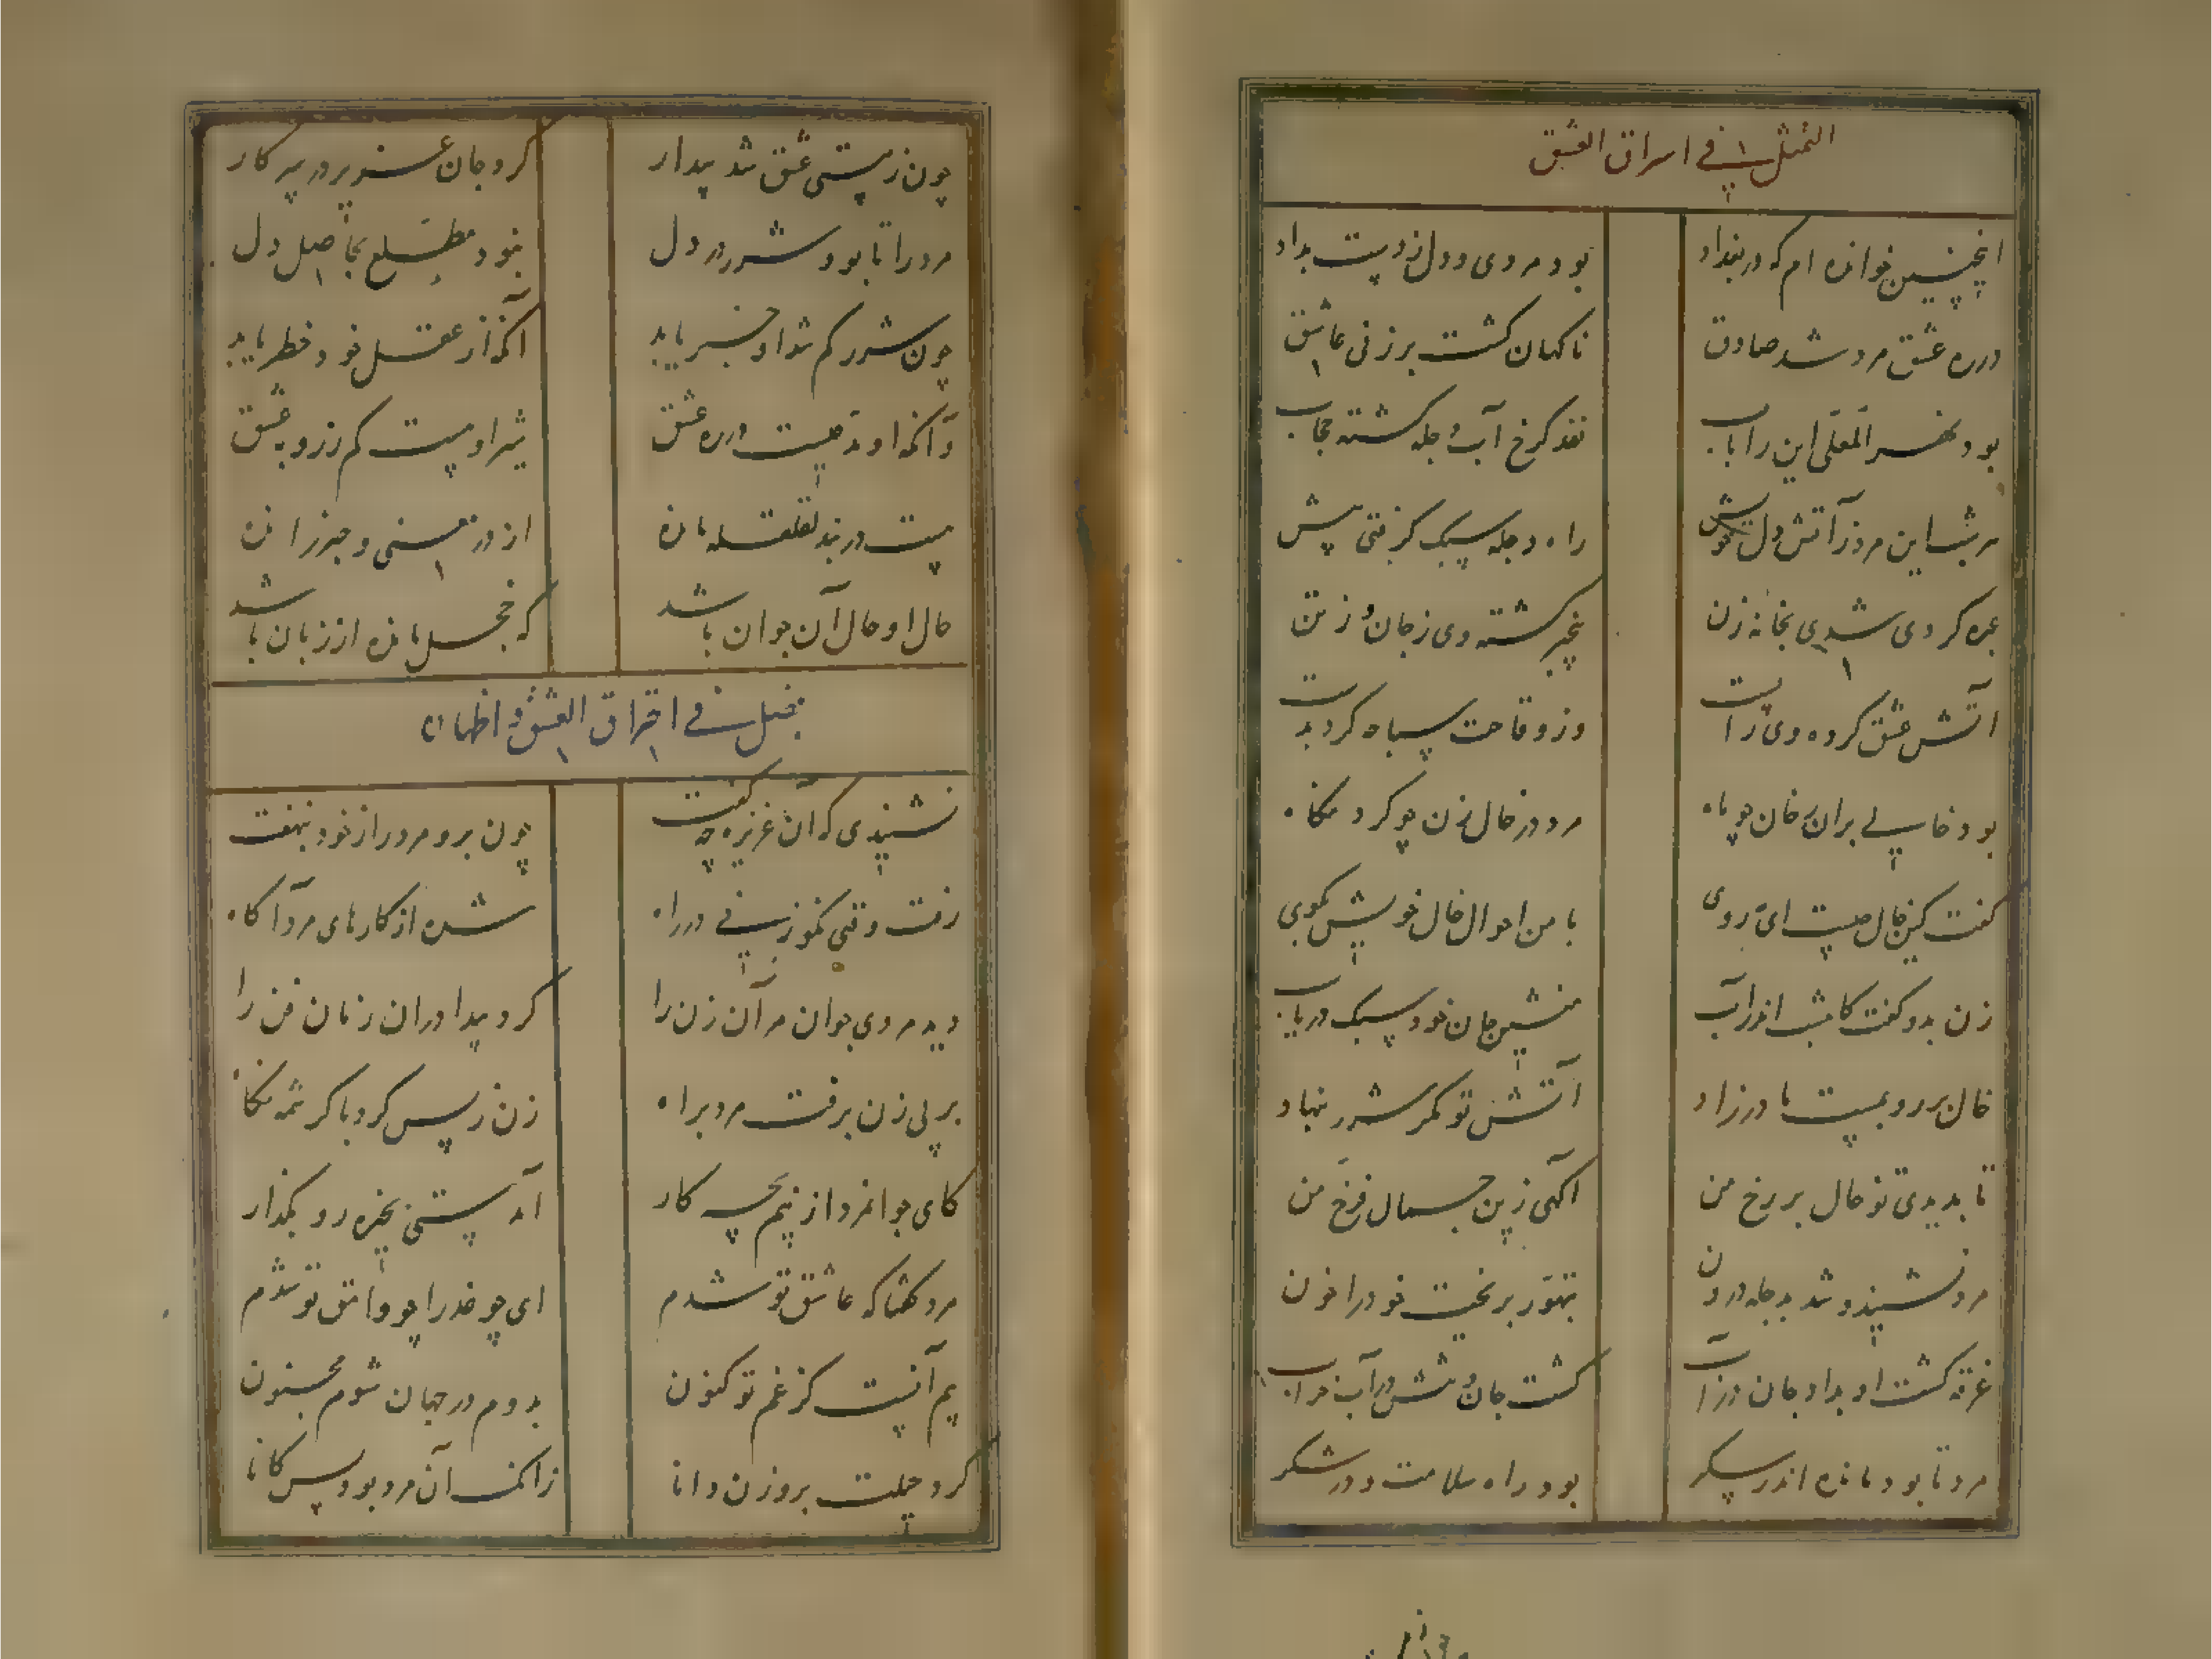 التمثیل فی احراق العشق
اینچنین خوانده ام که در بغداد
بود مردی و دل ز دست بداد
در ره عشق مرد شد صادق
ناکهان کشت بر زنی عاشق
بود نهر المعلی این را باب
نقد کرخ آب دجله کشته حجاب
هر شب این مرد ز آتش دل خویش
راه دجله سبک کرفتی پیش
عبره کردی شدی بخانه زن
بیخبر کشته وی ز جان و ز تن
آتش عشق کرده وی راست
وز وقاحت سباحه کرد بدست
بود خالی بر آن رخان چو ماه
مرد در خال زن چو کرد نکاه
کفت کین خال چیست ای مه روی
با من احوال خال خویش بکوی
زن بدو کفت کامشب اندر آب
منشین جان خود سبک دریاب
خال بر رویست مادرزاد
آتش تو مکر شرر ننهاد
تا بدیدی تو خال بر رخ من
آکهی زین جمال فرخ من
مرد نشنید و شد بدجله درون
بتهور بریخت خود را خون
غرقه کشت او بداد جان در آب
کشت جان و تنش در آب خراب
مرد تا بود مانده اندر سکر
بود راه سلامت و در شکر
چون ز مستی عشق شد بیدار
کرد جان عزیز در سر کار
مرد را تا بود شرر در دل
نبود مطلع بحاصل دل
چون شرر کم شد او خبر یابد
آنکه از عقل خود خطر یابد
وآنکه او مدعیست در ره عشق
نیز او نیست کم ز روبه عشق
هست در بند لقلقه مانده
از در معنی و خبر رانده
حال او حال آن جوان باشد
که خجل مانده از زبان باشد
فصل فی افتراق العشق و اظهاره
نشنیدی که آن عزیزه چه کفت
چون برو مرد راز خود بنهفت
رفت وقتی نکو زنی در راه
شده از کارهای مرد آکاه
دید مردی جوان مر آن زن را
کرد پیدا در آن زمان فن را
بر پی زن برفت مرد براه
زن ز پس کرد با کرشمه نکاه
کای جوانمرد از پیم بچه کار
آمدستی بخیره رو بکذار
مرد کفتا که عاشق تو شدم
ای چو عذرا چو وامق تو شدم
بیم آنست کز غم تو کنون
بدوم در جهان شوم مجنون
کرد حیلت برو زن دانا
زانکه آن مرد بود بس کانا